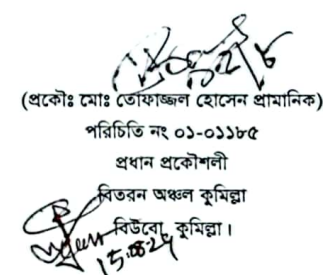 (প্রকৌঃ মোঃ তোফাজ্জল হোসেন প্রামানিক)
পরিচিতি নং ০১-০১১৮৫
প্রধান প্রকৌশলী
বিতরন অঞ্চল কুমিল্লা
বিউবো, কুমিল্লা।